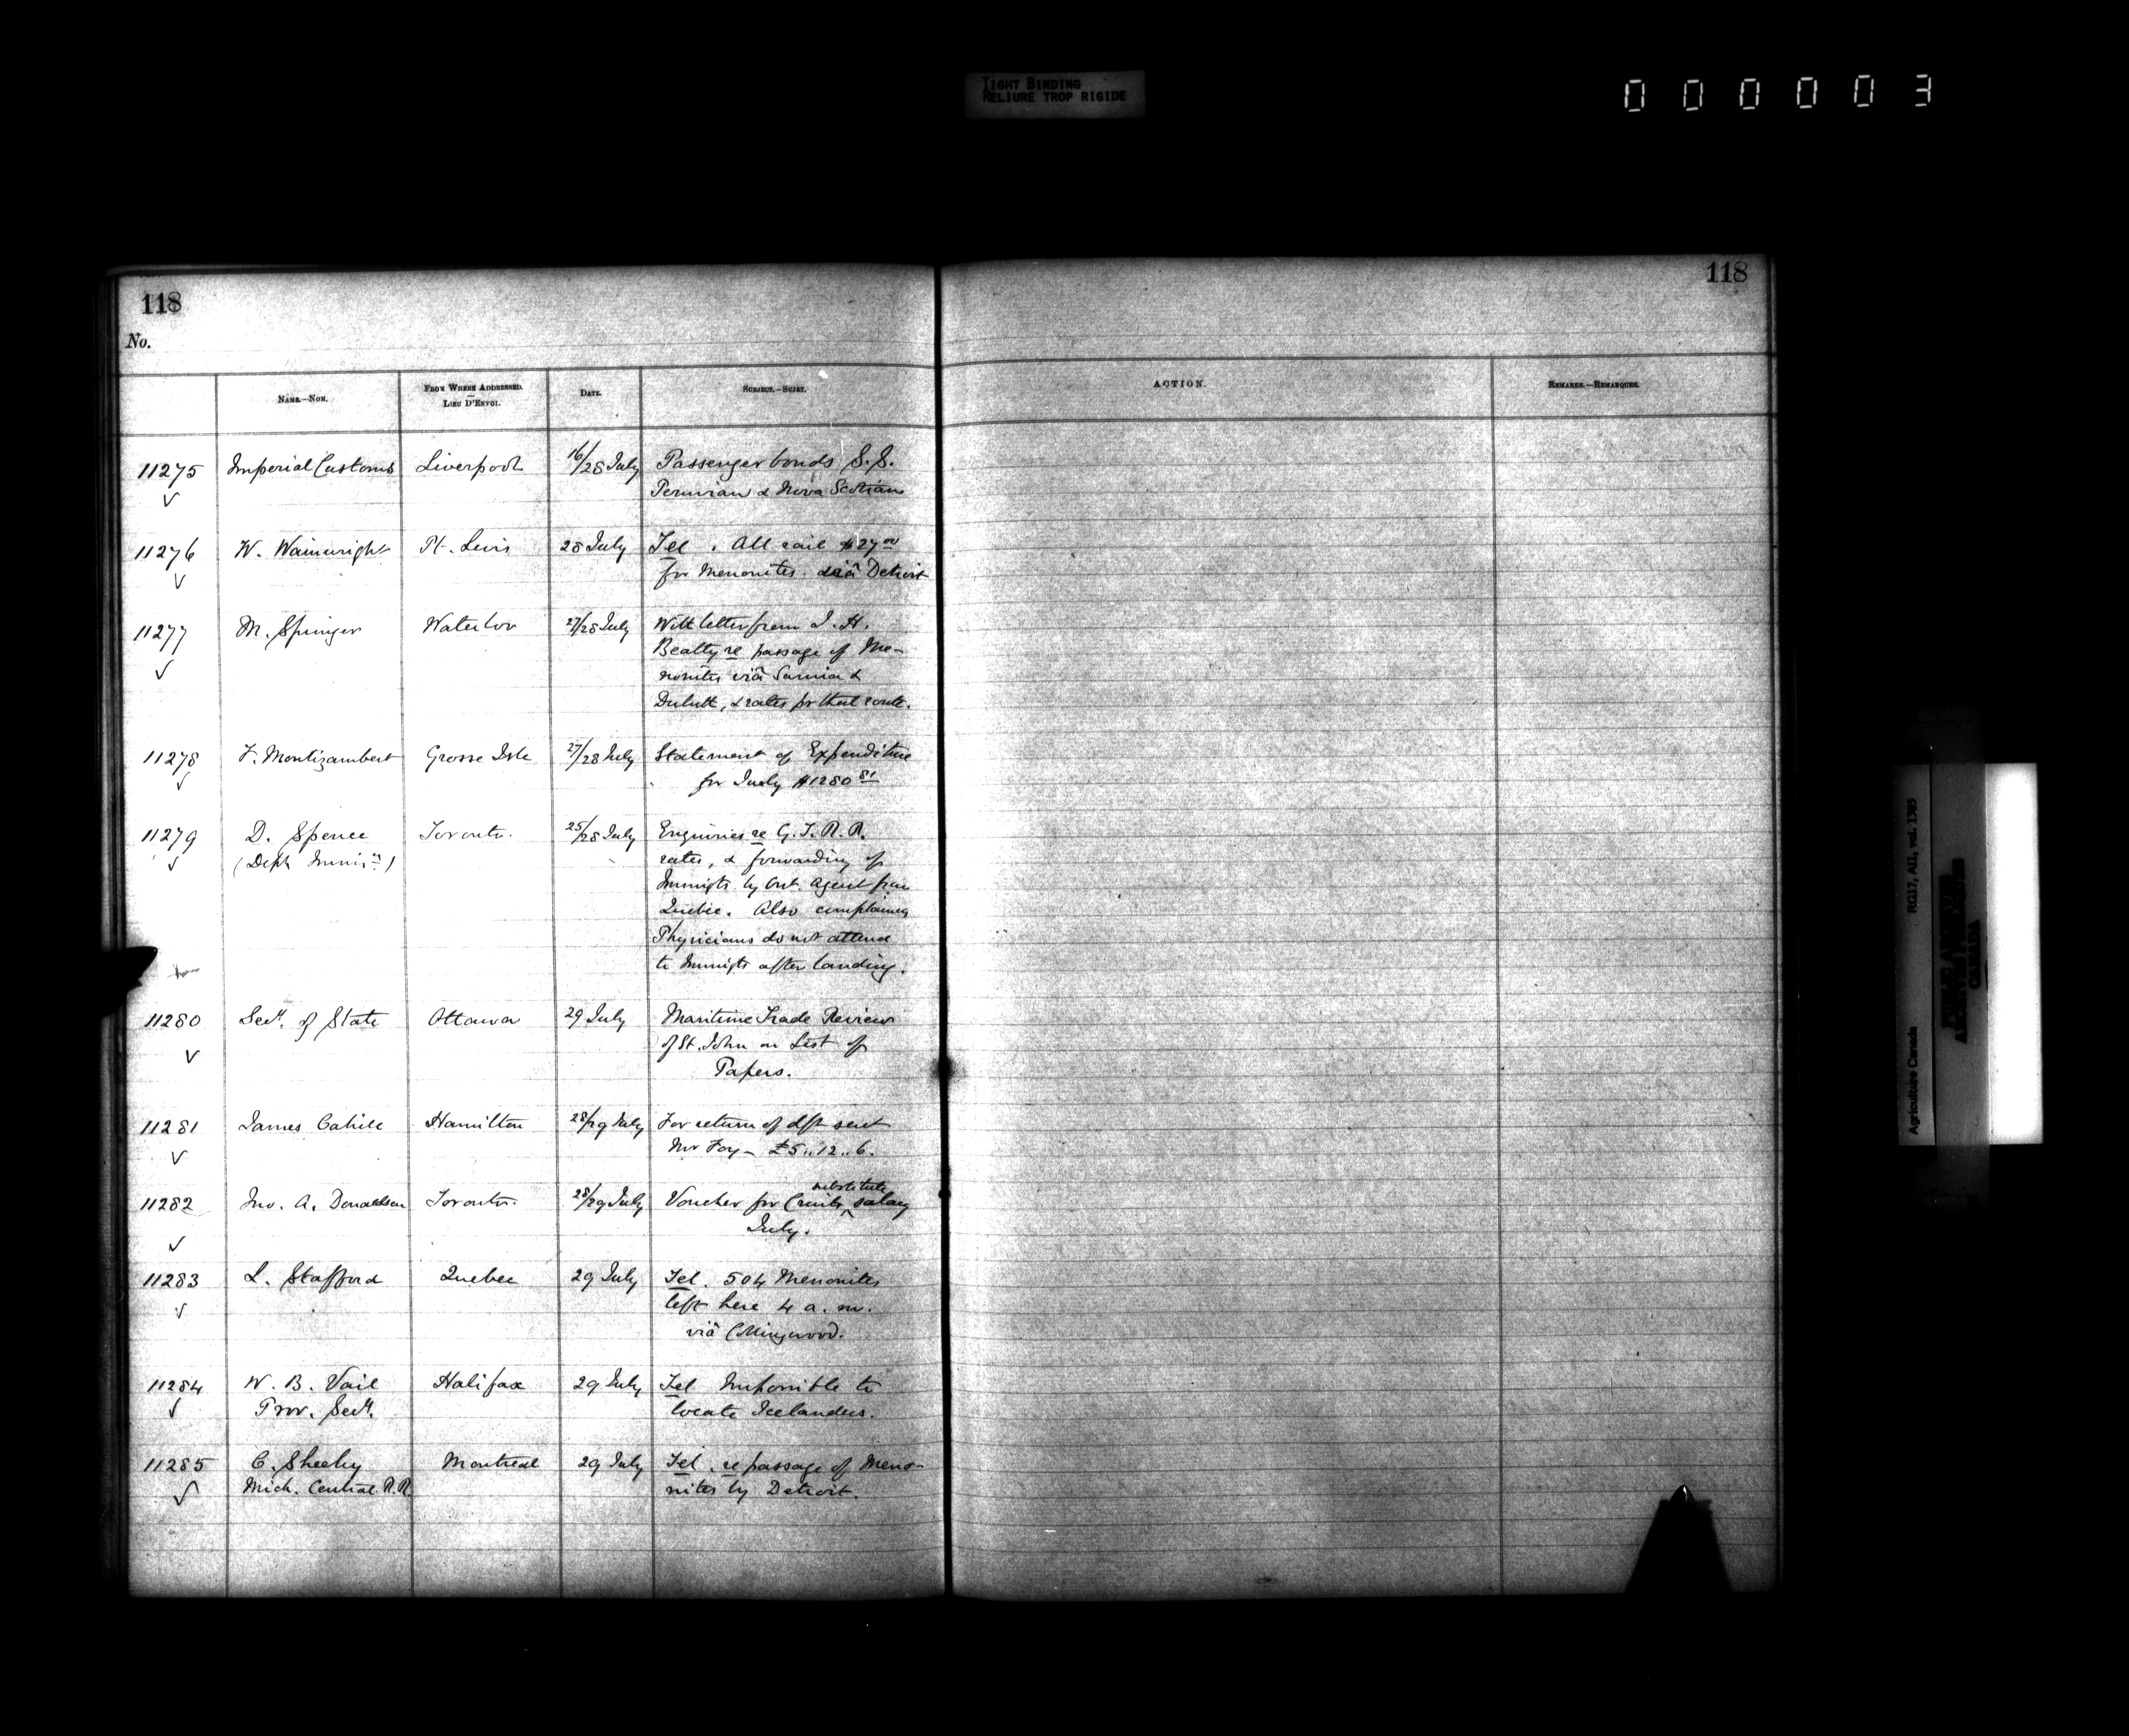 TIGHT BINDING
RELIURE TROP RIGIDE
000003
118
118
No.
NAME.—NOM.
FROM WHERE ADDRESSED.
—
LIEU D'ENVOI.
DATE.
SUBJECT.—SUJET.
ACTION.
REMARKS.—REMARQUES.
11275 Imperial Customs Liverpool 16/28 July Passenger bonds S.S.
Peruvian & Nova Scotian
11276 W. Wainwright Pt. Levis 28 July Tel. All rail $27.00
for Menonites. viâ Detroit
11277 M. Springer Waterloo 27/28 July With letter from J. H.
Beatty re passage of Me-
nonites viâ Sarnia &
Duluth, & rates for that route.
11278 F. Montizambert Grosse Isle 27/28 July Statement of Expenditure
for July $1280 81
11279 D. Spence Toronto. 25/28 July Enquiries re G. T. R. R.
(Dept Immign.) rates, & forwarding of
Immigts by Ont. Agent from
Quebec. Also complaining
Physicians do not attend
to Immigts after landing.
11280 Secy. of State Ottawa 29 July Maritime Trade Review
of St. John on List of
Papers.
11281 James Cahill Hamilton 28/29 July For return of dft sent
Mr Foy — £5..12..6.
11282 Jno. A. Donaldson Toronto. 28/29 July Voucher for substitute salary
July.
11283 L. Stafford Quebec 29 July Tel. 504 Menonites
left here 4 a.m.
viâ Collingwood.
11284 W. B. Vail Halifax 29 July Tel Impossible to
Prov. Secy. locate Icelanders.
11285 C. Sheehy Montreal 29 July Tel. re passage of Meno-
Mich. Central R.R. nites by Detroit.
Agriculture Canada RG17, AII, vol. 1385
PUBLIC ARCHIVES
ARCHIVES PUBLIQUES
CANADA